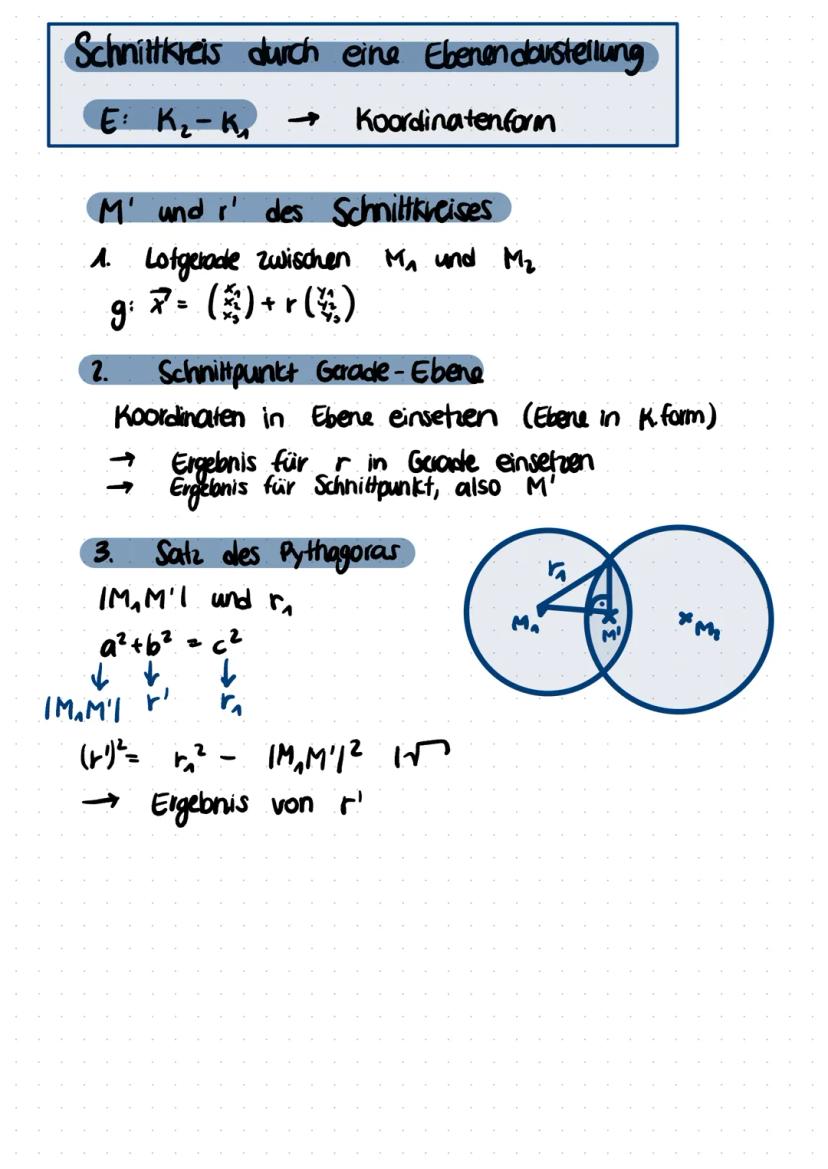 Schnittkreis durch eine Ebenendarstellung
E: K₂ - K₁ → Koordinatenform
M' und r' des Schnittkreises
1. Lotgerade zwischen M₁ und M₂
g: x⃗ = (x₁ x₂ x₃) + r (y₁ y₂ y₃)
2. Schnittpunkt Gerade-Ebene
Koordinaten in Ebene einsetzen (Ebene in K.form)
→ Ergebnis für r in Gerade einsetzen
→ Ergebnis für Schnittpunkt, also M'
3. Satz des Pythagoras
|M₁M'| und r₁
a² + b² = c²
↓ ↓ ↓
|M₁M'| r' r₁
r₁
M₁
M'
M₂
(r')² = r₁² - |M₁M'|² |√
→ Ergebnis von r'